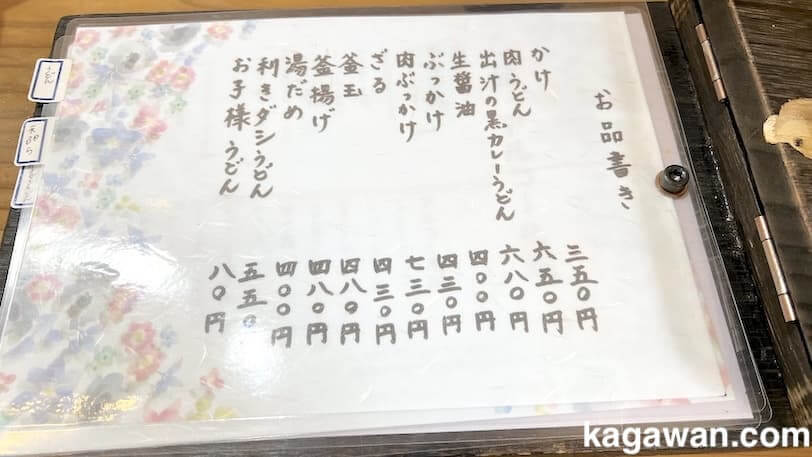 お品書き
かけ 三五〇円
肉うどん 六五〇円
出汁の黒カレーうどん 六八〇円
生醤油 四〇〇円
ぶっかけ 四三〇円
肉ぶっかけ 七三〇円
ざる 四三〇円
釜玉 四八〇円
釜揚げ 四八〇円
湯だめ 四〇〇円
利きダシうどん 五五〇円
お子様うどん 八〇円
うどん
kagawan.com